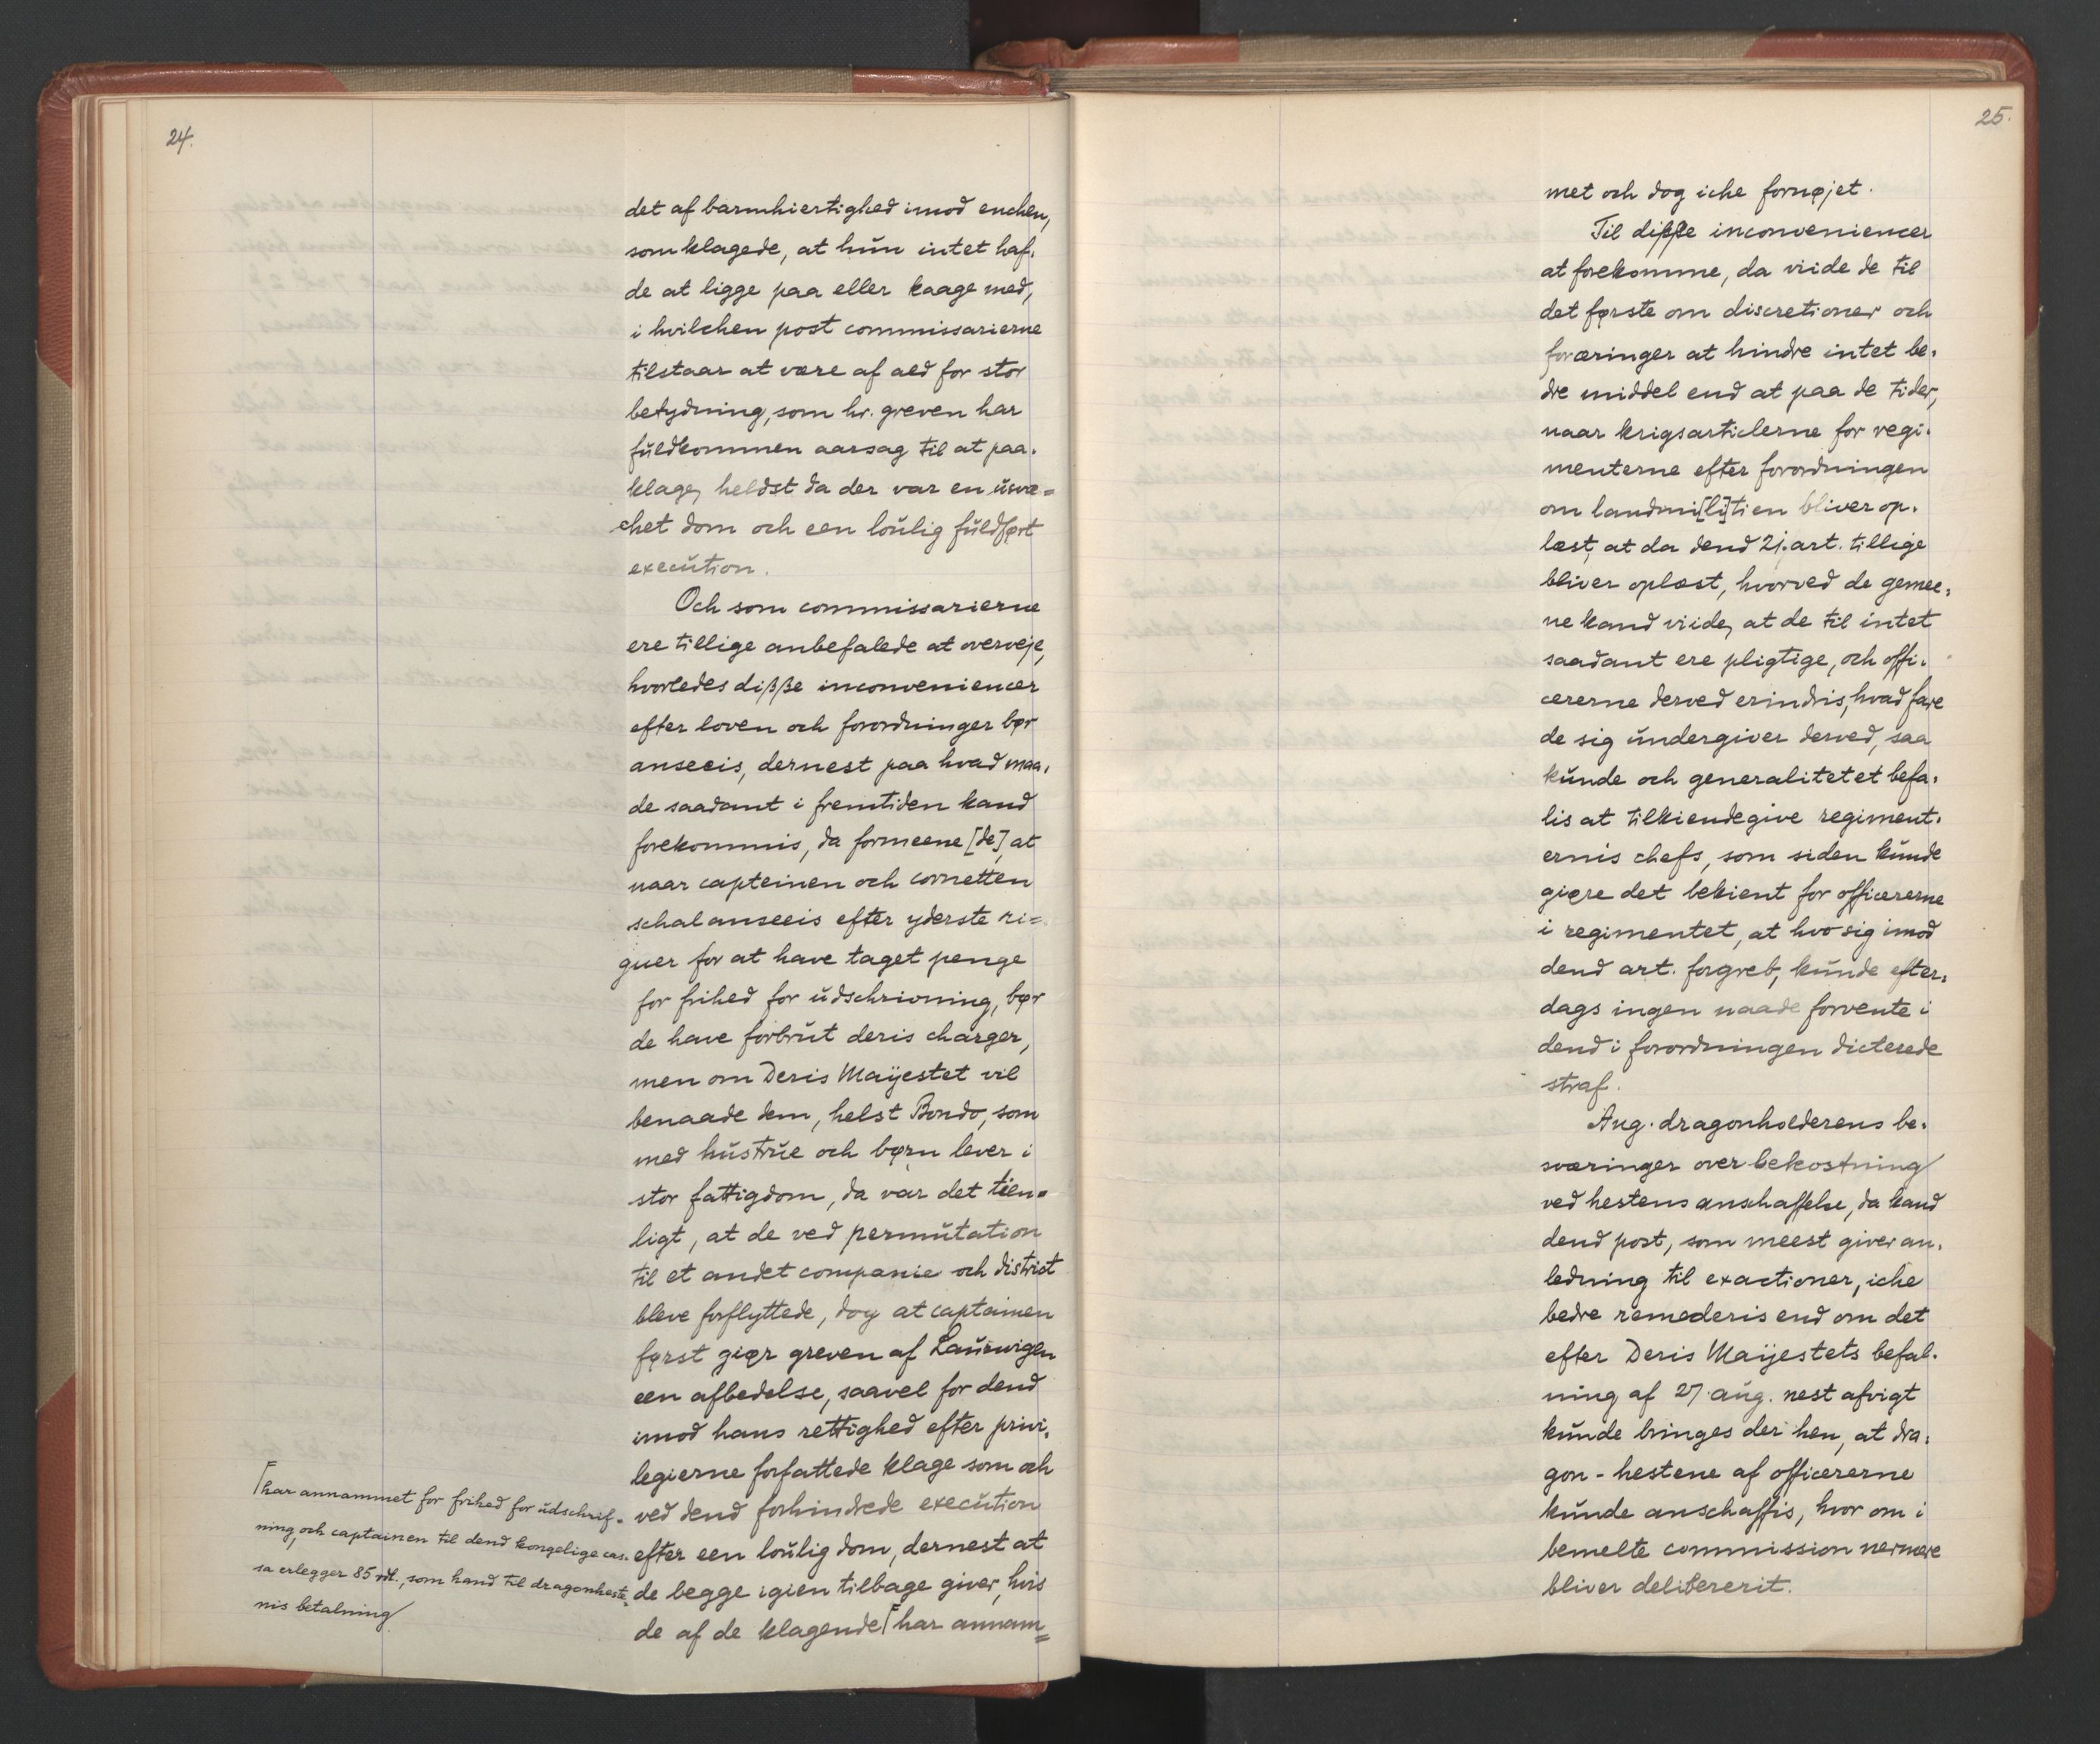 24.
det af barmhiertighed imod enchen,
som klagede, at hun intet haf-
de at ligge paa eller kaage med,
i hvilchen post commissarierne
tilstaar at være af ald for stor
betydning, som hr. greven har
fuldkommen aarsag til at paa-
klage, heldst da der var en usvæ=
chet dom och een loulig fuldført
execution.
Och som commissarierne
ere tillige anbefalede at overveje,
hvorledes disse inconveniencer
efter loven och forordninger bør
anseeis, dernest paa hvad maa-
de saadant i fremtiden kand
forekommis, da formeene [de], at
naar capteinen och cornetten
schal anseeis efter yderste ri=
guer for at have taget penge
for frihed for udschrivning, bør
de have forbrut deris charger,
men om Deris Maÿestet vil
benaade dem, helst Bondo, som
med hustrue och børn lever i
stor fattigdom, da var det tien-
ligt, at de ved permutation
til et andet companie och district
bleve forflyttede, dog at captainen
først giør greven af Laurwigen
een afbedelse, saavel for dend
imod hans rettighed efter privi-
legierne forfattede klage som och
ved dend forhindrede execution
efter een loulig dom, dernest at
de begge igien tilbage giver, hvis
de af de klagende ⌈har annam=
⌈har annammet for frihed for udschrif-
ning, och captainen til dend kongelige cas-
sa erlegger 85 rdl., som hand til dragonheste-
nis betalning/
25.
met och dog iche fornøjet.
Til disse inconveniencer
at forekomme, da viide de til
det første om discretioner och
foræringer at hindre intet be-
dre middel end at paa de tider,
naar krigsarticlerne for regi-
menterne efter forordningen
om landmi[li]tien bliver op-
læst, at da dend 21. art. tillige
bliver oplæst, hvorved de gemee-
ne kand viide, at de til intet
saadant ere pligtige, och offi-
cererne derved erindris, hvad fare
de sig undergiver derved, saa
kunde och generalitetet befa-
lis at tilkiendegive regiment-
ernis chefs, som siden kunde
giøre det bekient for officererne
i regimentet, at hvo sig imod
dend art. forgreb, kunde efter-
dags ingen naade forvente i
dend i forordningen dicterede
straf.
Ang. dragonholderens be-
sværinger over bekostning/
ved hestens anschaffelse, da kand
dend post, som meest giver an-
ledning til exactioner, iche
bedre remederis end om det
efter Deris Maÿestets befal-
ning af 27 aug. nest afvigt
kunde bringes der hen, at dra-
gon-hestene af officererne
kunde anschaffis, hvor om i
bemelte commission nermere
bliver delibererit.